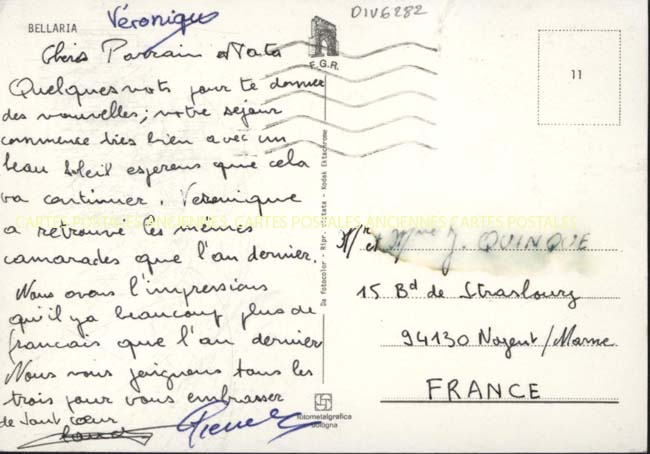 BELLARIA
Véronique
DIV6282
F.G.R.
11
Chers Parrain et Nata
Quelques mots pour te donner
des nouvelles; notre séjour
commence très bien avec un
beau soleil esperons que cela
va continuer. Veronique
a retrouvé les mêmes
camarades que l'an dernier.
Nous avons l'impressions
qu'il ya beaucoup plus de
francais que l'an dernier
Nous nous joignons tous les
trois pour vous embrasser
de tout coeur
CARTES POSTALES ANCIENNES CARTES POSTALES ANCIENNES CARTES POSTALES
Da fotocolor - Ripr. vietata - Kodak Ektachrome
fotometalgrafica
bologna
Mr et Mme J. QUINQUE
15 Bd de Strasbourg
94130 Nogent/Marne
FRANCE